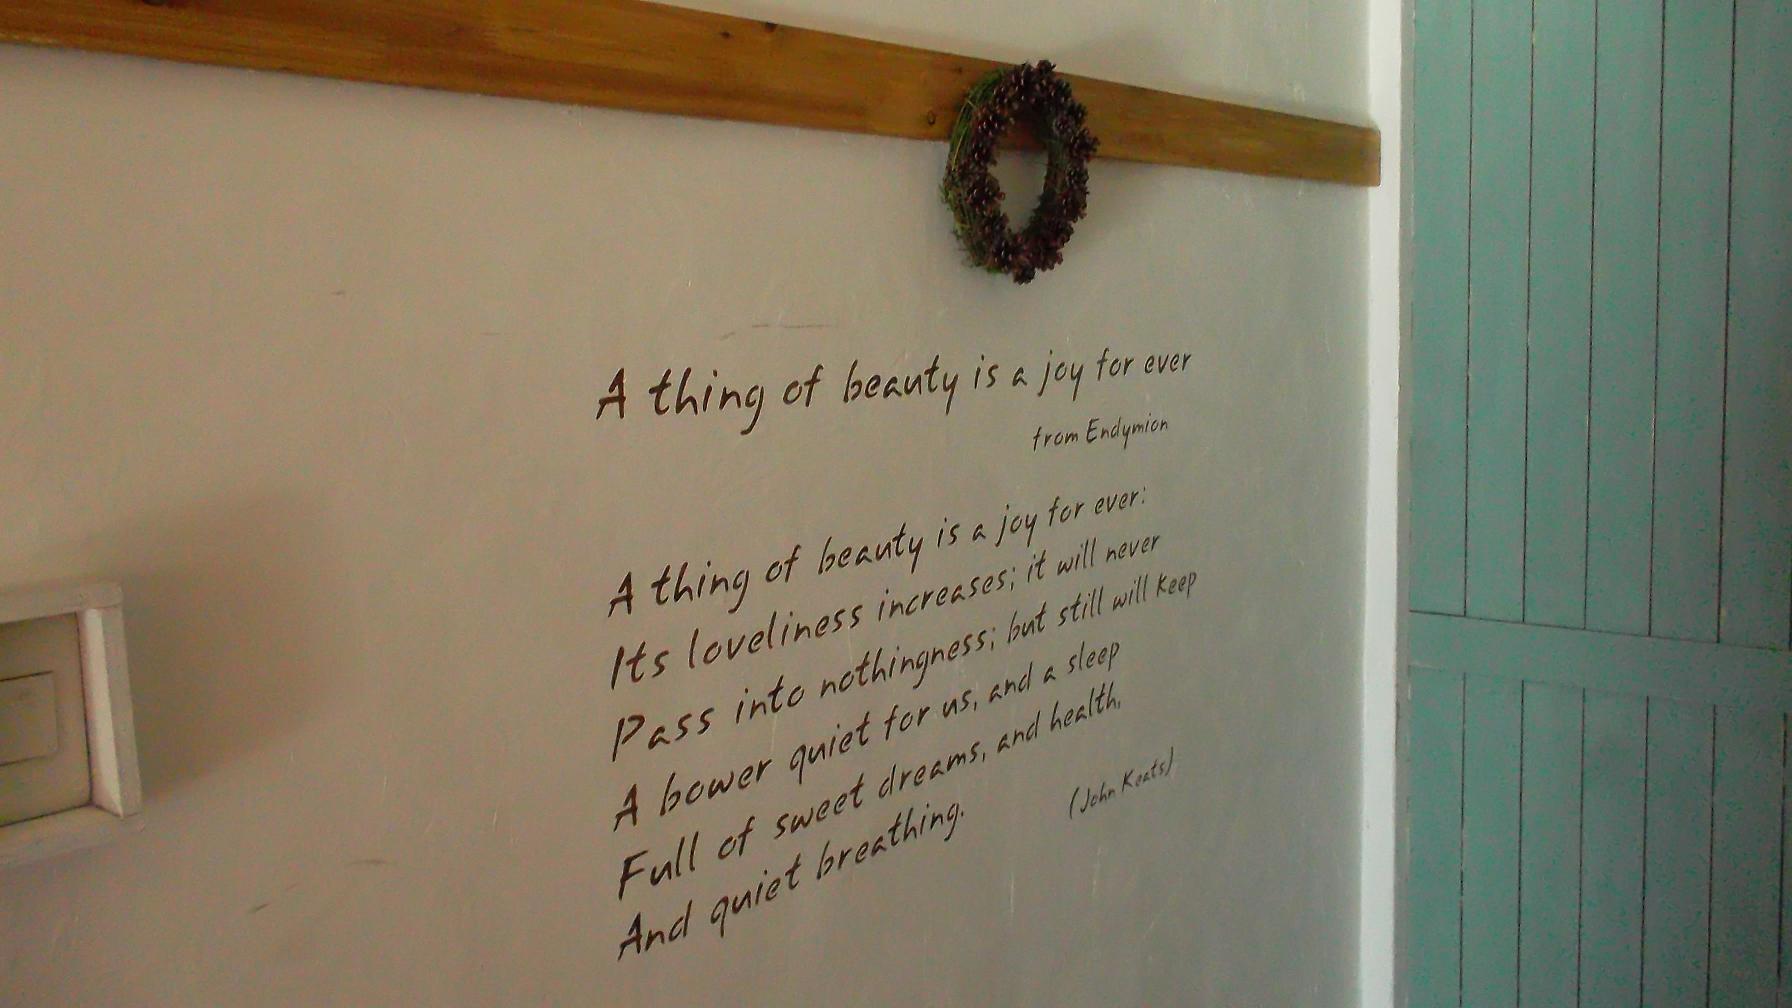 A thing of beauty is a joy for ever
from Endymion
A thing of beauty is a joy for ever:
Its loveliness increases; it will never
Pass into nothingness; but still will keep
A bower quiet for us, and a sleep
Full of sweet dreams, and health,
And quiet breathing.
(John Keats)